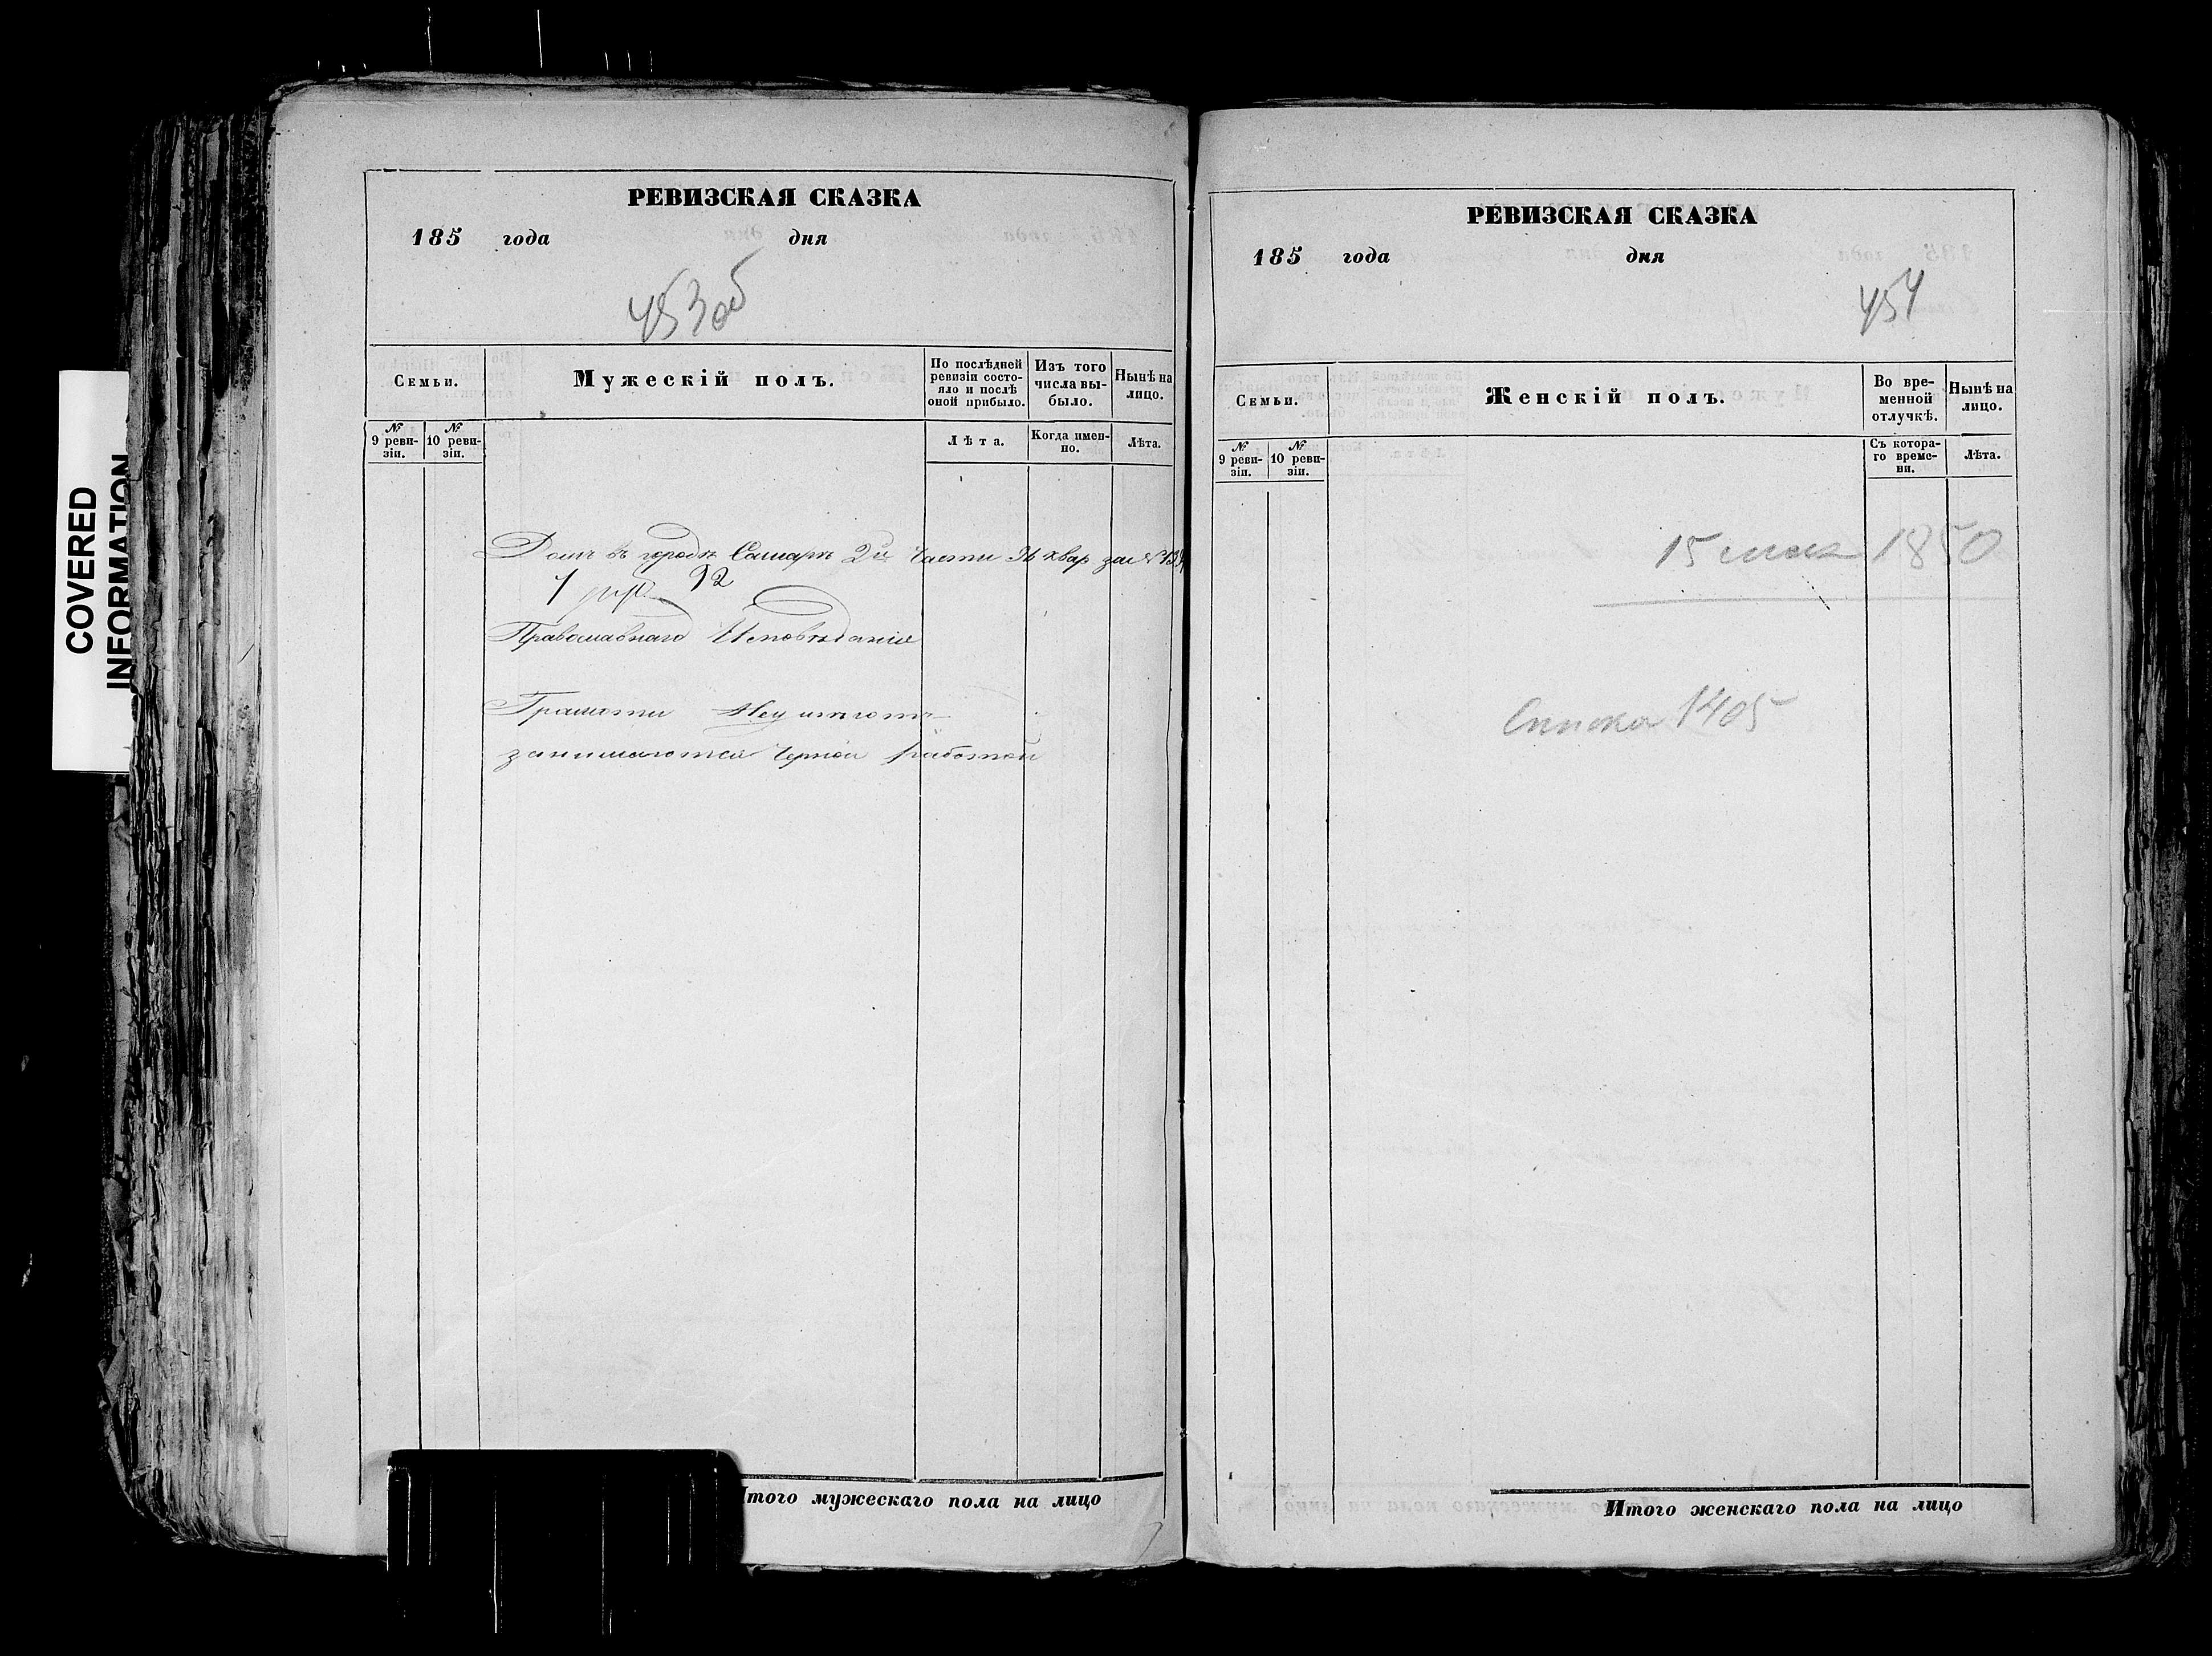 COVERED
INFORMATION
РЕВИЗСКАЯ СКАЗКА
185 года дня
453об
Семьи.
Мужескій полъ.
По послѣдней ревизіи состояло и послѣ оной прибыло.
Изъ того числа выбыло.
Нынѣ на лицо.
№ 9 ревизіи.
№ 10 ревизіи.
Лѣта.
Когда именно.
Лѣта.
Домъ въ городѣ Самарѣ 2й части 36 квар за №
92
Православнаго Исповѣданія
Грамоти Неумѣютъ
занимаются черной работой
Итого мужескаго пола на лицо
РЕВИЗСКАЯ СКАЗКА
185 года дня
454
Семьи.
Женскій полъ.
Во временной отлучкѣ.
Нынѣ на лицо.
№ 9 ревизіи.
№ 10 ревизіи.
Съ котораго времени.
Лѣта.
15 мая 1850
Списка 1405
Итого женскаго пола на лицо